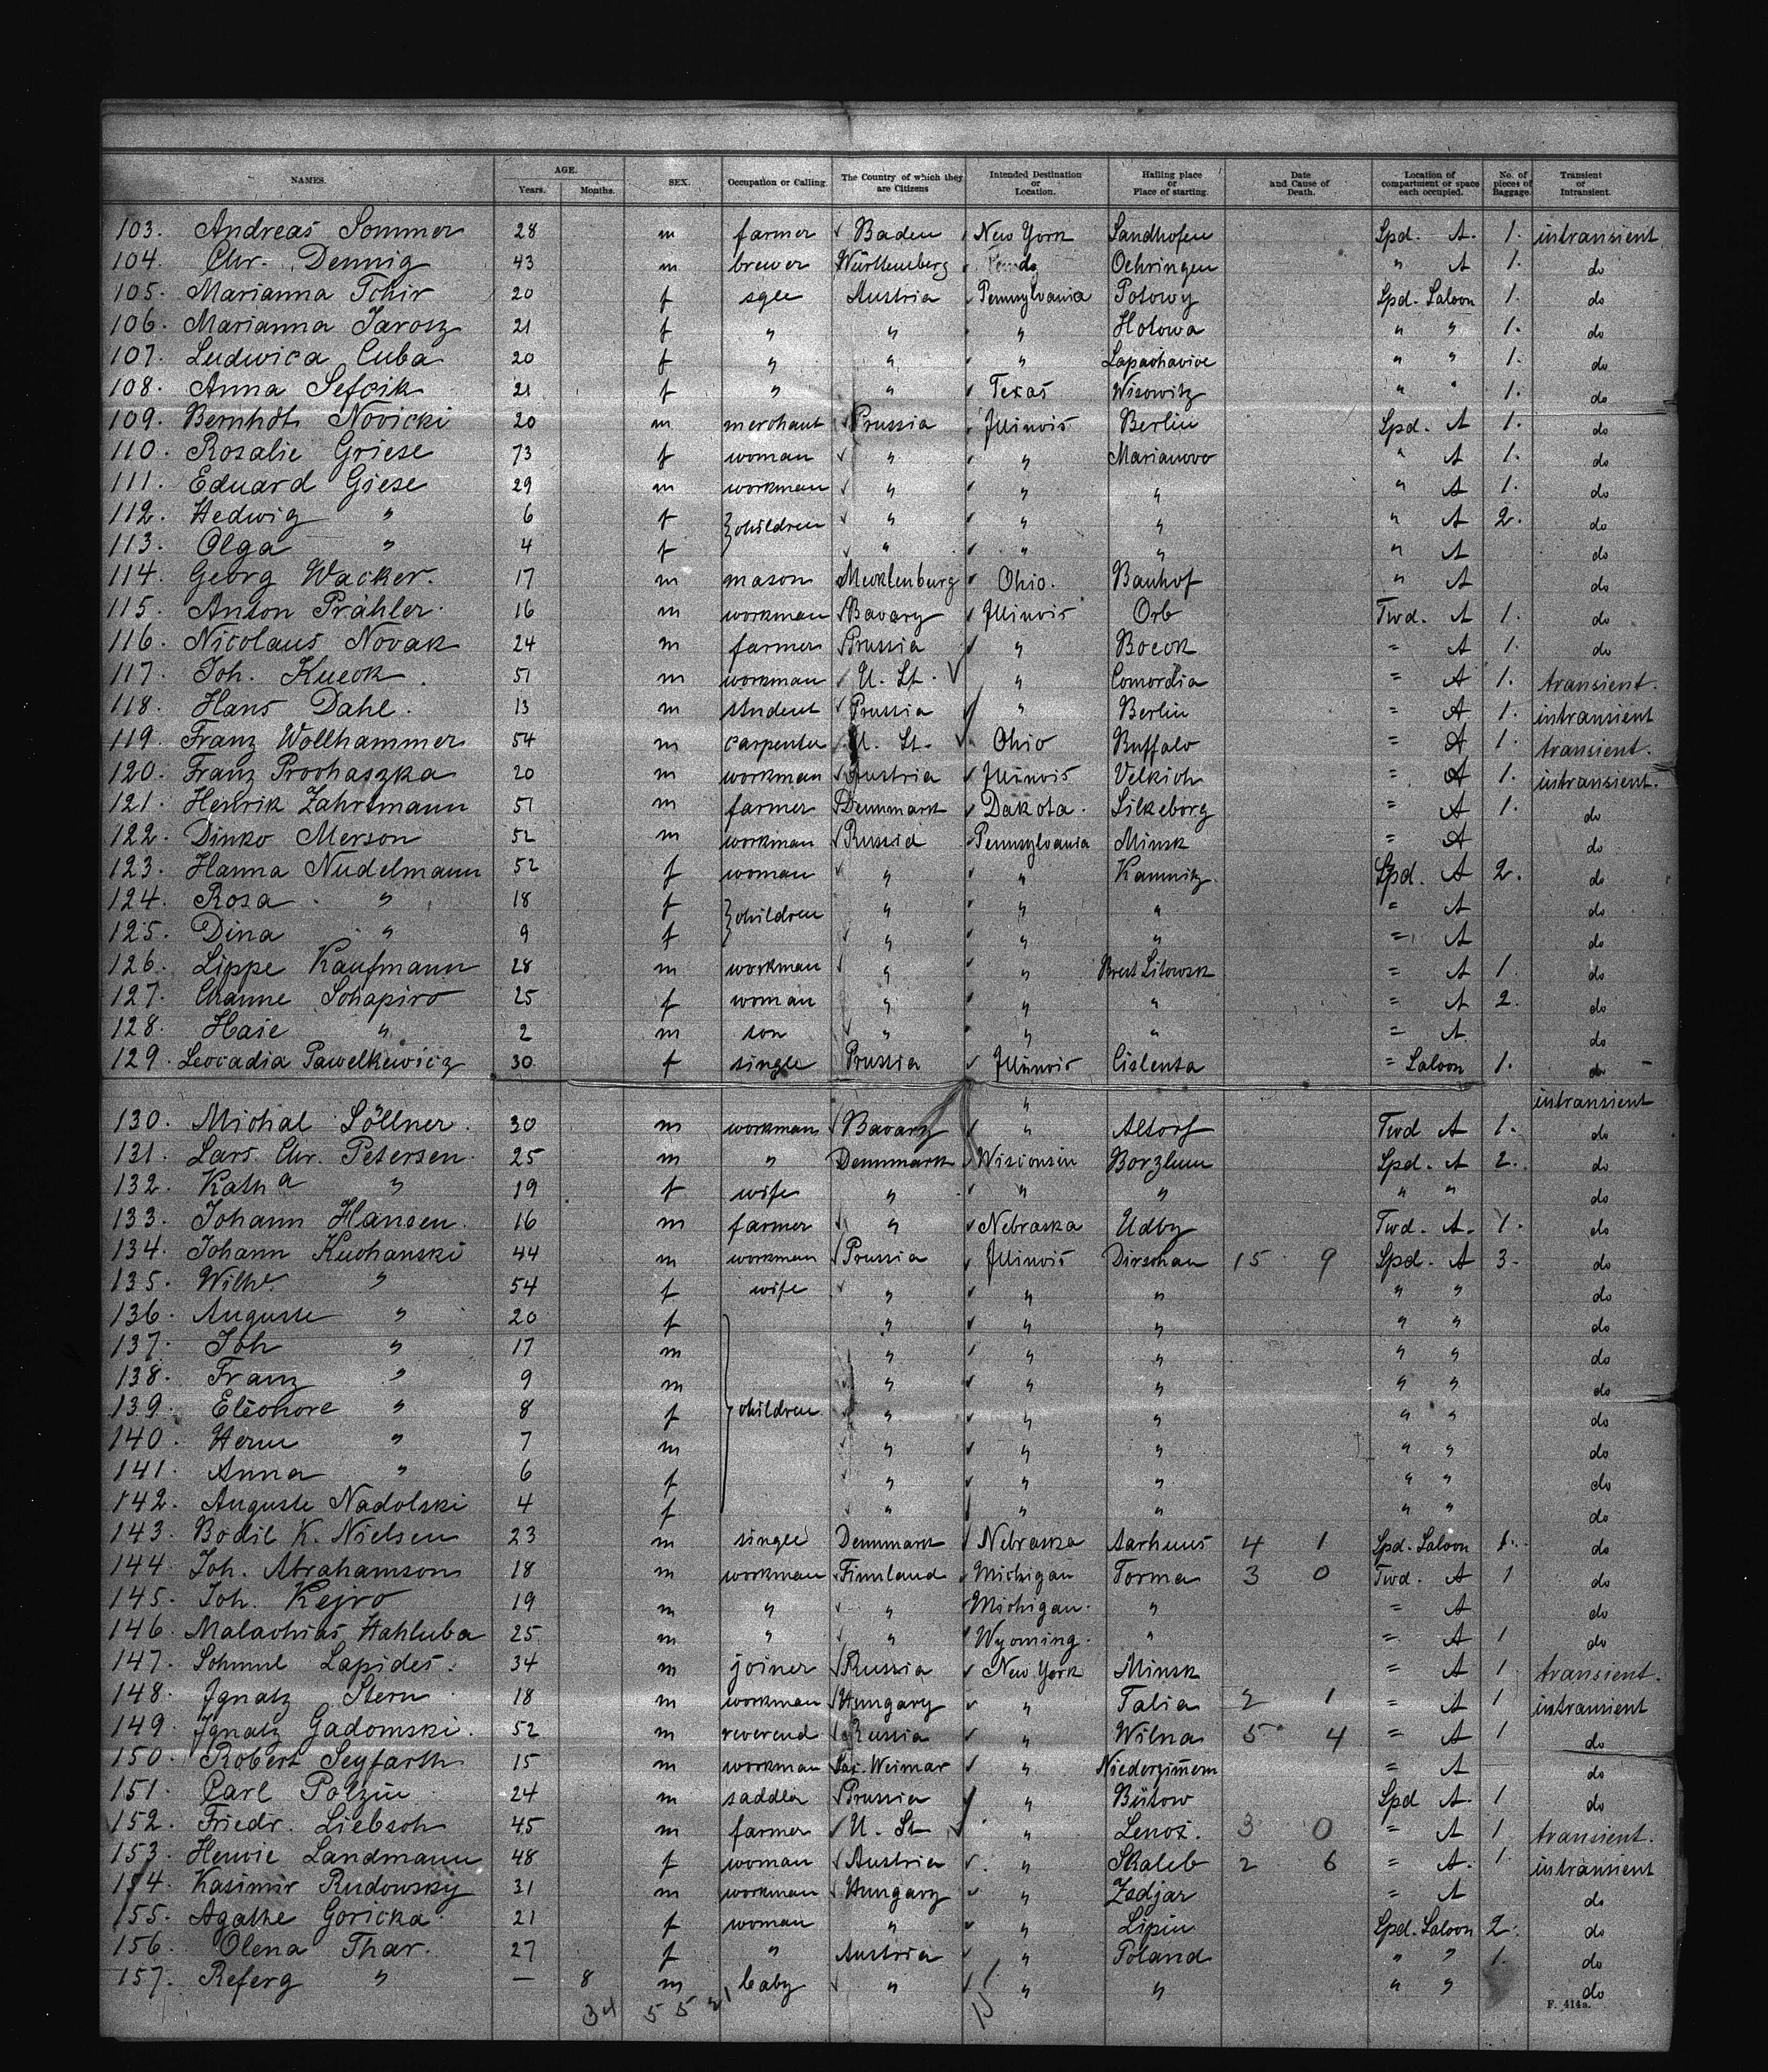 NAMES. AGE. Years. Months. SEX. Occupation or Calling. The Country of which they are Citizens Intended Destination or Location. Hailing place or Place of starting. Date and Cause of Death. Location of compartment or space each occupied. No. of pieces of Baggage. Transient or Intransient.
103. Andreas Sommer 28 m farmer Baden New York Sandhofen Spd. A. 1. intransient
104. Chr. Dennig 43 m brewer Württemberg Oehringen " A 1. do
105. Marianna Tchir 20 f sgle Austria Pennsylvania Potowy Spd. Saloon 1. do
106. Marianna Jarosz 21 f " " " Holowa " " 1. do
107. Ludwica Cuba 20 f " " " Lapachavice " " 1. do
108. Anna Sefcik 21 f " " Texas Wisowitz " " 1. do
109. Bernhdt Novicki 20 m merchant Prussia Illinois Berlin Spd. A 1. do
110. Rosalie Griese 73 f woman " " Marianovo " A 1. do
111. Eduard Giese 29 m workman " " " " A 1. do
112. Hedwig " 6 f } children " " " " A 2. do
113. Olga " 4 f " " " " A do
114. Georg Wacker. 17 m mason Mecklenburg Ohio. Bauhof " A do
115. Anton Prähler. 16 m workman Bavary Illinois Orb Twd. A 1. do
116. Nicolaus Novak 24 m farmer Prussia " Bocok = A 1. do
117. Joh. Kucok. 51 m workman U. St. " Comordia = A 1. transient.
118. Hans Dahl. 13 m student Prussia " Berlin = A 1. intransient
119. Franz Wollhammer 54 m carpenter U. St. Ohio Buffalo = A 1. transient.
120. Franz Prochaszka 20 m workman Austria Illinois Velkich = A 1. intransient.
121. Henrik Zahrtmann 51 m farmer Denmark Dakota. Silkeborg = A 1. do
122. Dinko Merson 52 m workman Russia Pennsylvania Minsk = A do
123. Hanna Nudelmann 52 f woman " " Kamnitz Spd. A 2. do
124. Rosa " 18 f } children " " " = A do
125. Dina " 9 f " " " = A do
126. Lippe Kaufmann 28 m workman " " Brest Litowsk = A 1. do
127. Channe Schapiro 25 f woman " " " = A 2. do
128. Haie " 2 m son " " " = A. do
129. Leocadia Pawelkewicz 30 f single Prussia Illinois Cislenta = Saloon 1. do
" intransient
130. Michal Söllner. 30 m workman Bavary " Altorf Twd A 1. do
131. Lars Chr. Petersen. 25 m " Denmark Wisconsin Borzlum Spd. A 2. do
132. Katha " 19 f wife " " " " " do
133. Johann Hansen. 16 m farmer " Nebraska Udby Twd. A. 1. do
134. Johann Kuchanski 44 m workman Prussia Illinois Dirschau 15 9 Spd. A 3. do
135. Wilhe. " 54 f wife " " " " " do
136. Auguste " 20 f " " " " " do
137. Joh " 17 m " " " " " do
138. Franz " 9 m " " " " " do
139. Eleonore " 8 f } children " " " " " do
140. Herm " 7 m " " " " " do
141. Anna " 6 f " " " " " do
142. Auguste Nadolski 4 f " " " " " do
143. Bodil K. Nielsen 23 m single Denmark Nebraska Aarhuus 4 1 Spd. Saloon 1. do
144. Joh. Abrahamson 18 m workman Finnland Michigan Torma 3 0 Twd. A 1 do
145. Joh. Kejro 19 m " " Michigan. " = A do
146. Malachias Hahluba 25 m " " Wyoming. " = A 1 do
147. Schmul Lapides. 34 m joiner Russia New York Minsk = A 1 transient.
148. Ignatz Stern 18 m workman Hungary " Talia 2 1 = A 1 intransient
149. Ignatz Gadomski. 52 m reverend Russia " Wilna 5 4 = A 1 do
150. Robert Seyfarth 15 m workman Sac. Weimar " Niederzimern = A do
151. Carl Polzin 24 m saddler Prussia " Bütow Spd A. 1 do
152. Friedr. Liebsch 45 m farmer U. St " Lenox. 3 0 = A 1 transient.
153. Henvie Landmann 48 f woman Austria " Skaleb 2 6 = A. 1. intransient
154. Kasimir Rudowsky 31 m workman Hungary " Zadjar = A do
155. Agathe Goricka 21 f woman " " Lipin Spd. Saloon 2. do
156. Olena Thar. 27 f " Austria " Poland " " 1. do
157. Referg " — 8 m baby " " " " " do
34 5 5 21 15
F. 414a.